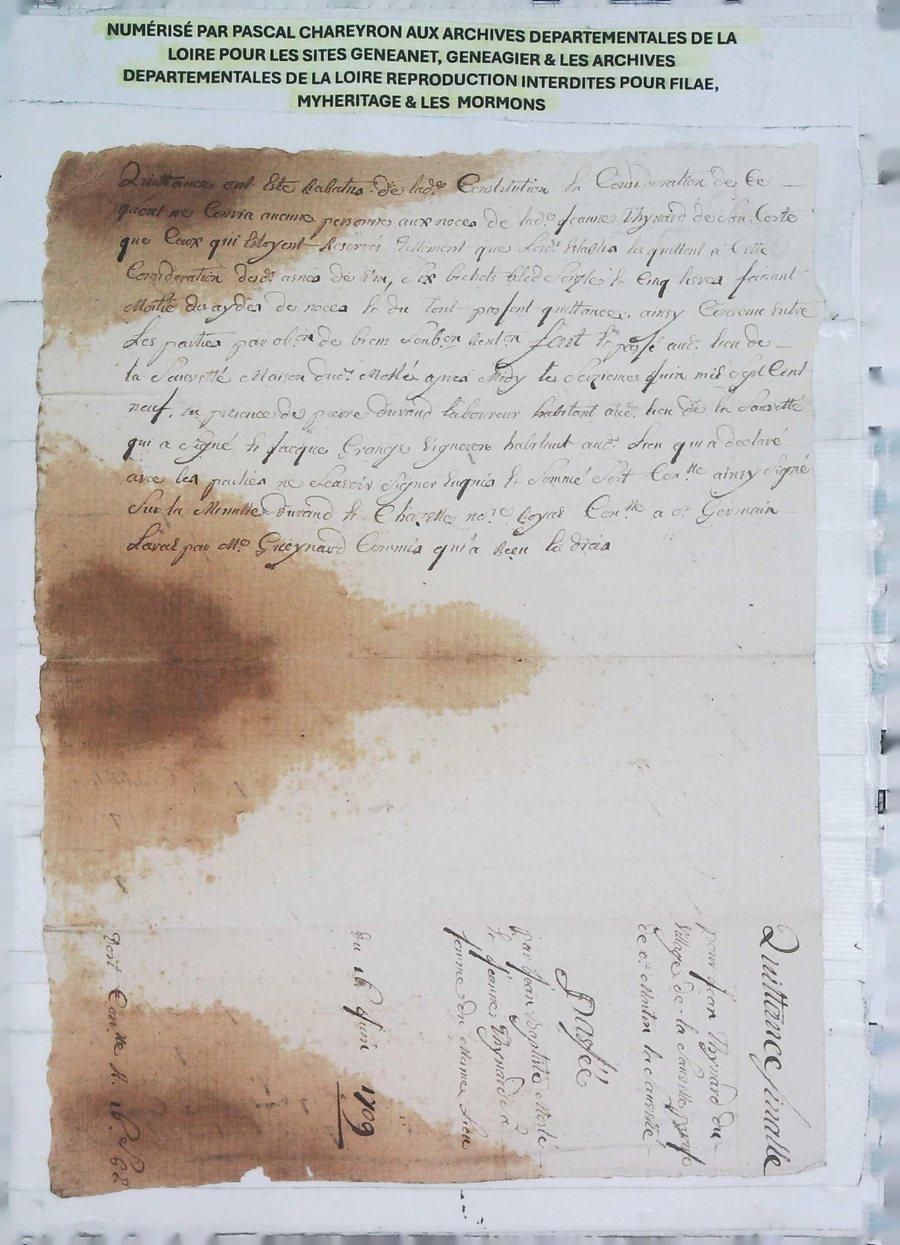 NUMÉRISÉ PAR PASCAL CHAREYRON AUX ARCHIVES DEPARTEMENTALES DE LA
LOIRE POUR LES SITES GENEANET, GENEAGIER & LES ARCHIVES
DEPARTEMENTALES DE LA LOIRE REPRODUCTION INTERDITES POUR FILAE,
MYHERITAGE & LES MORMONS
Quittance ont Este Rabatus de lade Constitution En Consideration de Ce
quont ne Convia aucune personne aux noces de lade Jeanne Thynard de Son Coste
que Ceux qui Estoyent Reserves tellement que les quittent a Cette
Consideration desd asnes de Vin, Six bichets bled Seigle et Cinq livres faisant
Moitie du aydes de noces et du Tout passent quittance, ainsy Convenu Entre
Les parties par obon de biens font et passé aud. lieu de
la Sauvetté Maison dud. Mollés apres Midy le Seizieme Juin mil Sept Cent
neuf, En presence de pierre Durand laboureur habitant aud. lieu de la Sauvetté
qui a Signé et Jacque Grange Vigneron habitant aud. Lieu qui a declaré
avec les parties ne Scavoir Signer Enquis et Sommé Sert Conlle ainsy Signé
Sur la Minutte Durand et Chazelles nore Royal Conlle a St Germain
Laval par Me Gueynard Commis qui a Receu les droits
Quittance finalle
pour Jean Thynard du
Village de la Sauvetté
de St Martin la Sauveté
Passée
par Jean Baptiste
et Jeanne Thynard sa
femme du mesme Lieu
du 16 Juin 1709